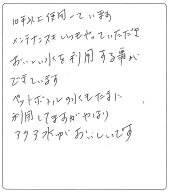 10年以上使用しています
メンテナンスもいつもやっていただき
おいしい水を利用する事が
できています
ペットボトルの水もたまに
利用してますがやはり
アクア水がおいしいです